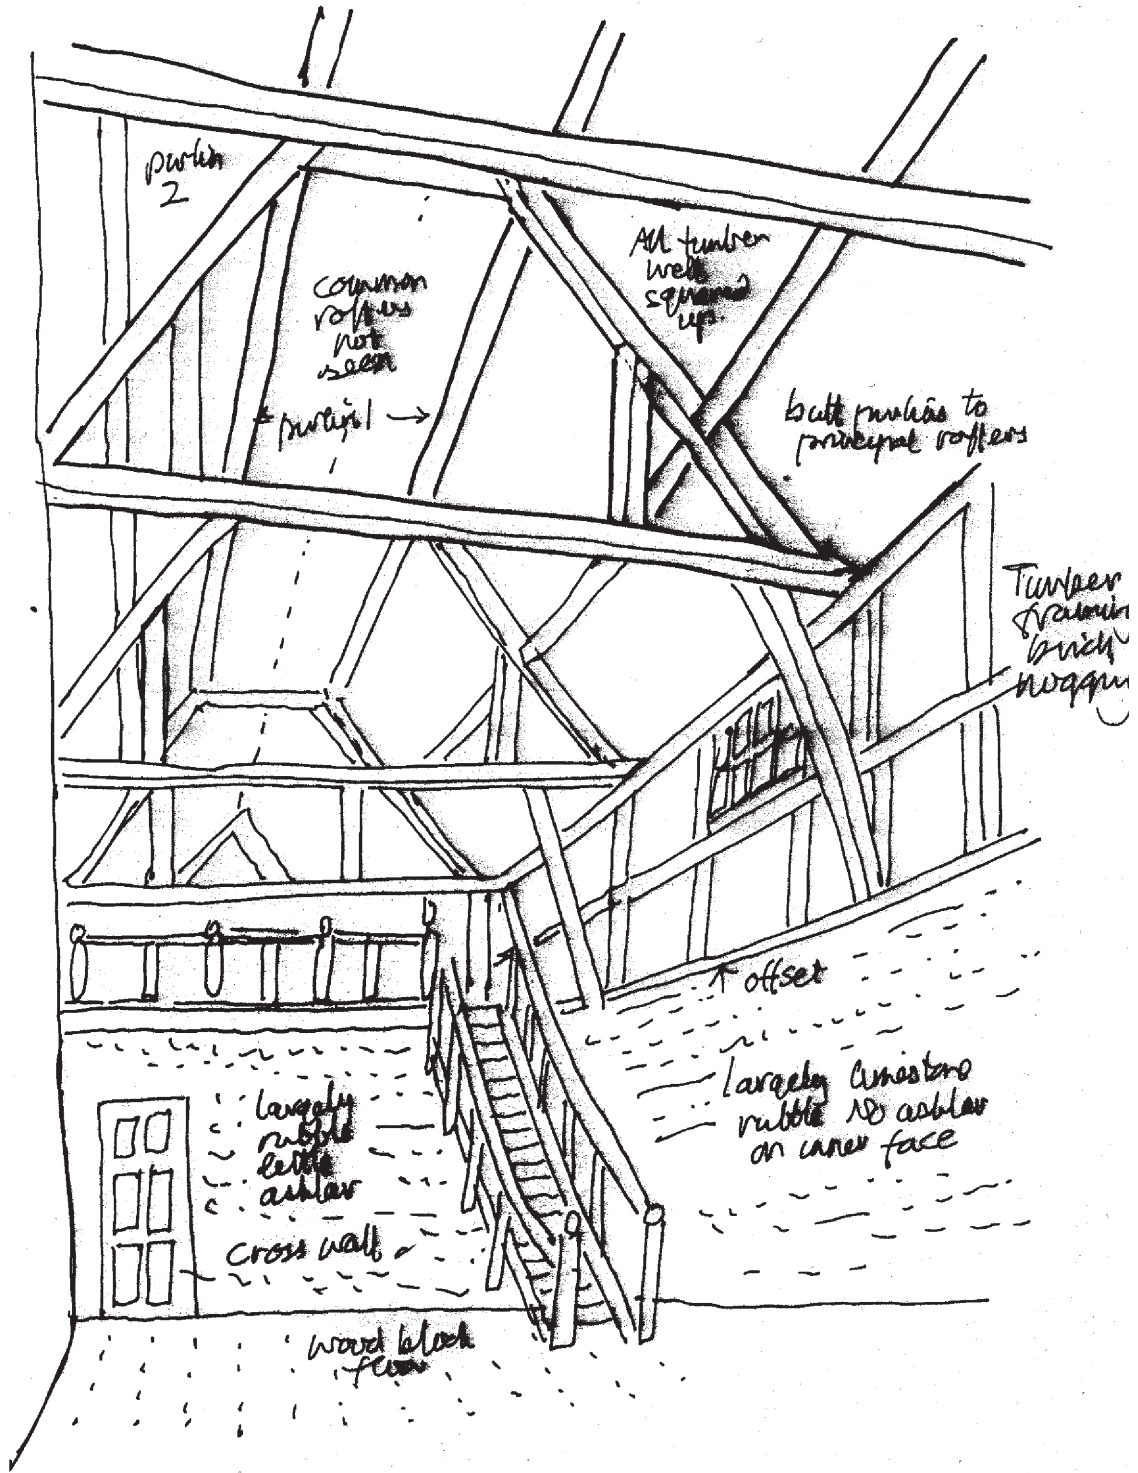 purlin
2
All timber
well
squared
ups.
common
rafters
not
seen
purlin 1
butt purlins to
principal rafters
Timber
framin
brick
noggin
offset
largely limestone
rubble no ashlar
on inner face
largely
rubble
little
ashlar
cross wall
wood block
floor